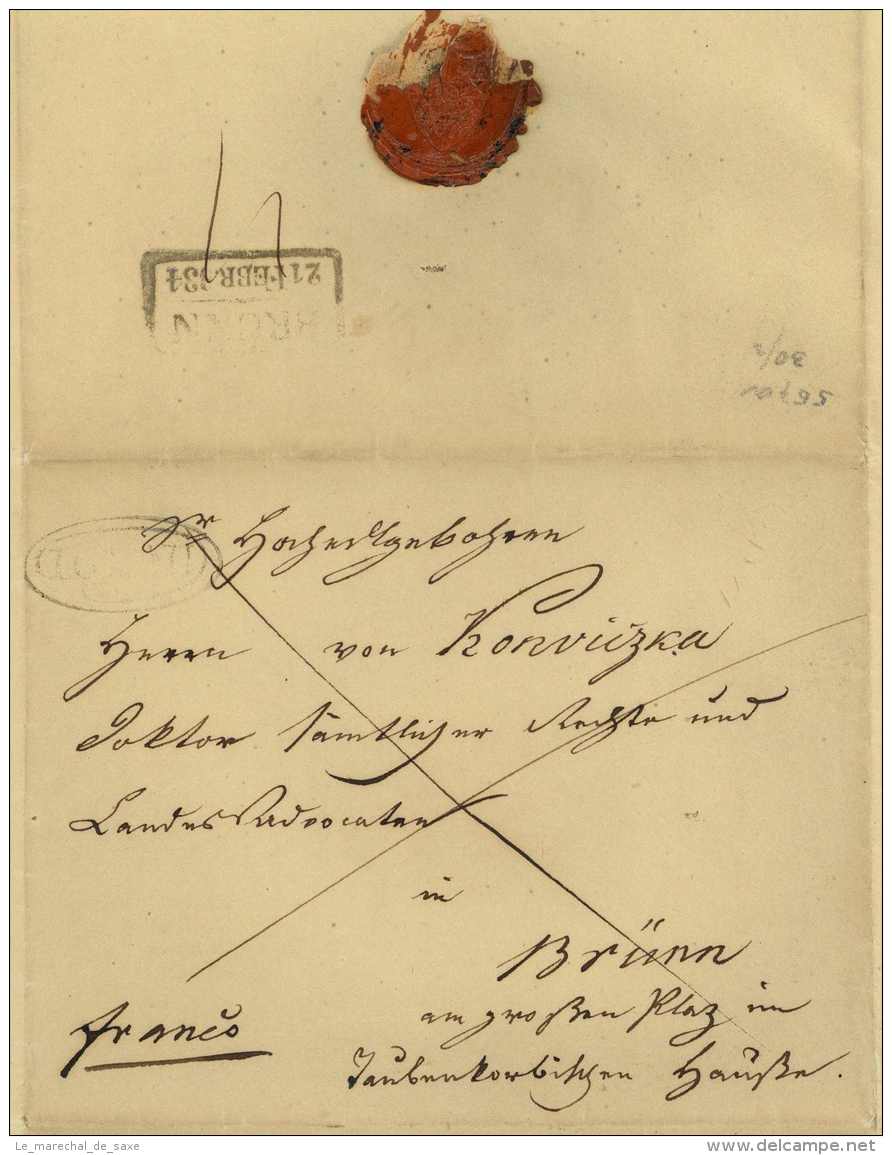 BRÜNN
21 FEBR. 834
Sr Hochedlgebohren
Herrn von Konviczka
Doktor sämtlicher Rechte und
Landes Advocaten
in
Brünn
am großen Plaz im
Taubenkorbischen Hauße.
franco
Le_marechal_de_saxe
www.delcampe.net